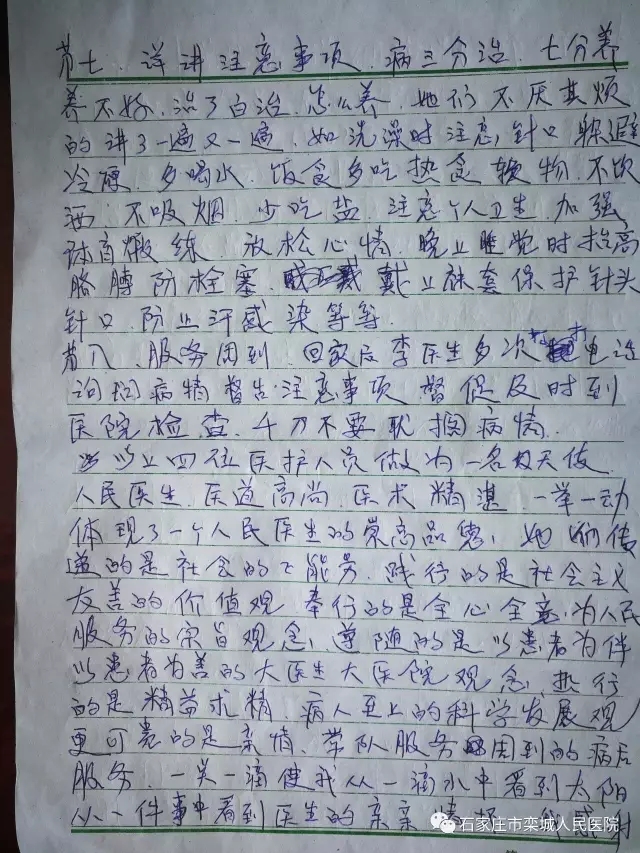 苐七、详讲注意事项、病三分治、七分养
养不好、治了白治、怎么养、她们不厌其烦
的讲了一遍又一遍、如洗澡时注意针口、躲避
冷硬、多喝水、饭食多吃热食软物、不饮
酒、不吸烟、少吃盐、注意个人卫生、加强
体育煅练、放松心情、晚上睡觉时抬高
胳膊防栓塞、戴上袜套保护针头
针口、防止汗感染等等。
苐八、服务周到、回家后李医生多次打电话
询问病情督告注意事项、督促及时到
医院检查、千万不要耽搁病情。
以上四位医护人员做为一名白天使
人民医生、医道高尚、医术精湛、一举一动
体现了一个人民医生的崇高品德、她们传
递的是社会的正能量、践行的是社会主义
友善的价值观、奉行的是全心全意为人民
服务的宗旨观念、遵随的是以患者为伴
以患者为善的大医生大医院观念、执行
的是精益求精、病人至上的科学发展观
更可贵的是亲情、带队服务周到的病后
服务、一点一滴使我从一滴水中看到太阳
从一件事中看到医生的亲亲情
石家庄市栾城人民医院